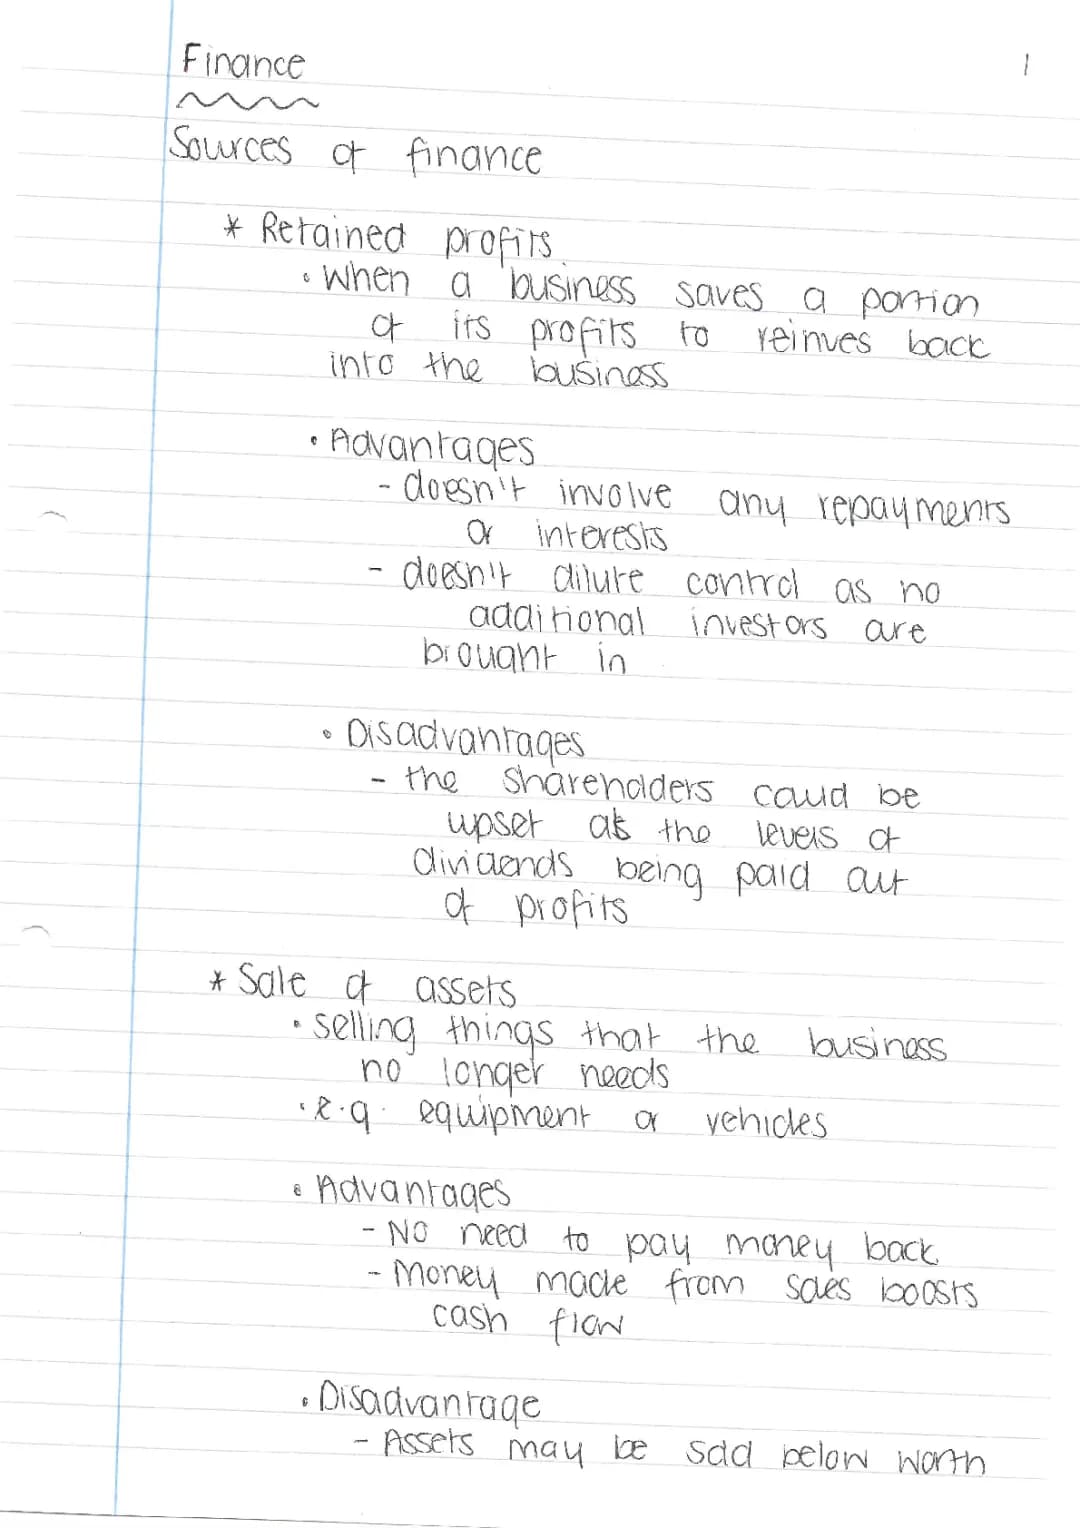 Finance
1
Sources of finance
* Retained profits
• When a business saves a portion
of its profits to reinves back
into the business
• Advantages
- doesn't involve any repayments
or interests
- doesn't dilute control as no
additional investors are
brought in
• Disadvantages
- the shareholders could be
upset at the levels of
dividends being paid out
of profits
* Sale of assets
• selling things that the business
no longer needs
• e.g. equipment or vehicles
• Advantages
- No need to pay money back
- Money made from sales boosts
cash flow
• Disadvantage
- Assets may be sold below worth